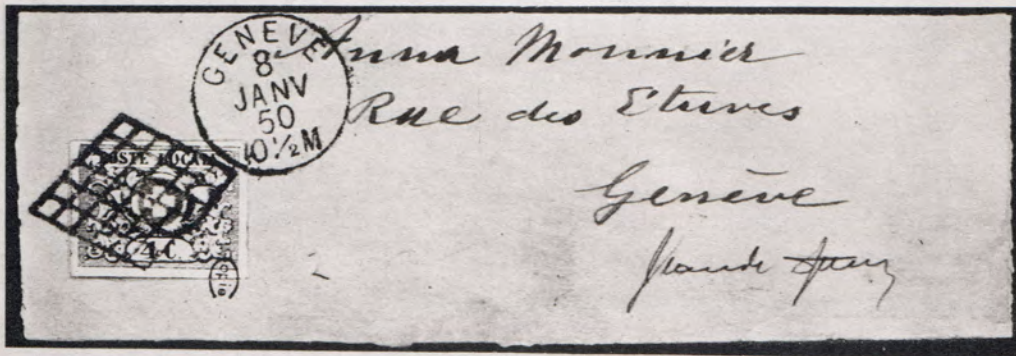 GENEVE
8
JANV
50
10½M
Anna Monnier
Rue des Etuves
Genève
POSTE LOCALE
4 C.
copie